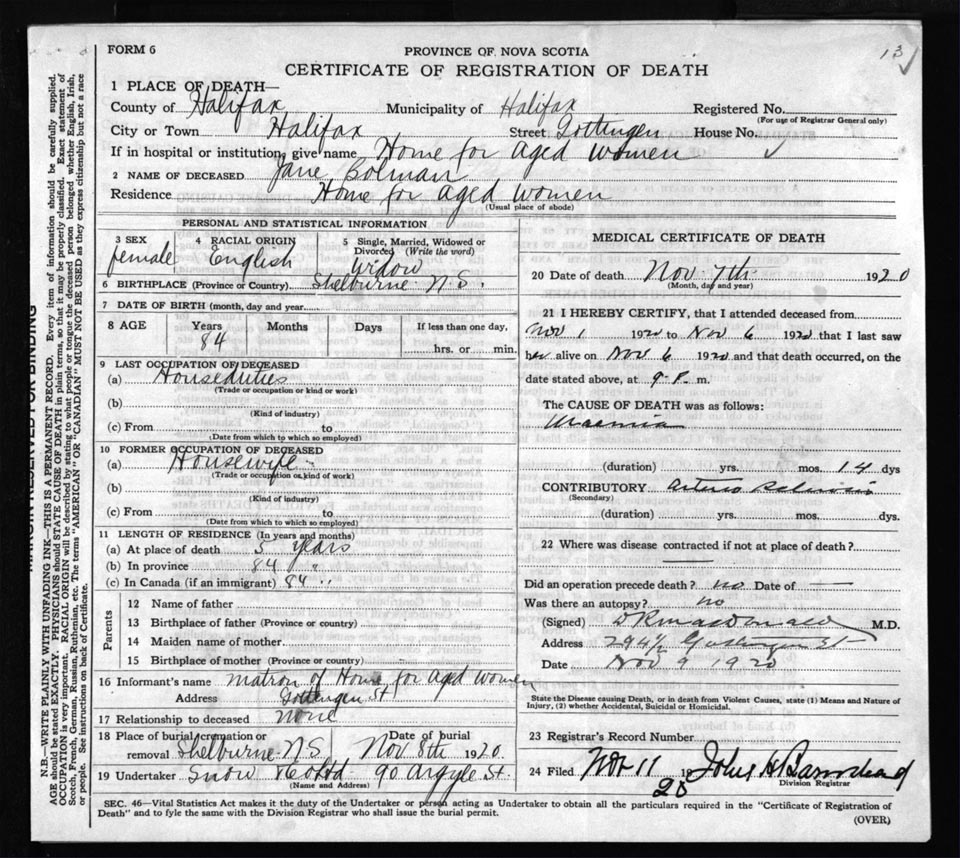 13
FORM 6
PROVINCE OF NOVA SCOTIA
CERTIFICATE OF REGISTRATION OF DEATH
1 PLACE OF DEATH—
County of Halifax Municipality of Halifax Registered No.
(For use of Registrar General only)
City or Town Halifax Street Gottingen House No.
If in hospital or institution, give name Home for aged women
2 NAME OF DECEASED Jane Bolman
Residence Home for aged women
(Usual place of abode)
PERSONAL AND STATISTICAL INFORMATION
3 SEX female
4 RACIAL ORIGIN English
5 Single, Married, Widowed or Divorced (Write the word) Widow
6 BIRTHPLACE (Province or Country) Shelburne N.S.
7 DATE OF BIRTH (month, day and year)
8 AGE Years Months Days If less than one day,
84 hrs. or min.
9 LAST OCCUPATION OF DECEASED
(a) Houseduties
(Trade or occupation or kind or work)
(b)
(Kind of industry)
(c) From to
(Date from which to which so employed)
10 FORMER OCCUPATION OF DECEASED
(a) Housewife
(Trade or occupation or kind of work)
(b)
(Kind of industry)
(c) From to
(Date from which to which so employed)
11 LENGTH OF RESIDENCE (In years and months)
(a) At place of death 5 years
(b) In province 84 "
(c) In Canada (if an immigrant) 84 "
Parents
12 Name of father
13 Birthplace of father (Province or country)
14 Maiden name of mother
15 Birthplace of mother (Province or country)
16 Informant's name matron of Home for aged women
Address Gottingen St
17 Relationship to deceased none
18 Place of burial, cremation or removal Shelburne N S Date of burial Nov 8th 1920
19 Undertaker Snow & Co Ltd 90 Argyle St.
(Name and Address)
MEDICAL CERTIFICATE OF DEATH
20 Date of death Nov 7th 1920
(Month, day and year)
21 I HEREBY CERTIFY, that I attended deceased from
Nov 1 1920 to Nov 6 1920 that I last saw
her alive on Nov 6 1920 and that death occurred, on the
date stated above, at 9 P. m.
The CAUSE OF DEATH was as follows:
Uraemia
(duration) yrs. mos. 14 dys
CONTRIBUTORY Arterio
(Secondary)
(duration) yrs. mos. dys.
22 Where was disease contracted if not at place of death?
Did an operation precede death? no Date of —
Was there an autopsy? no
(Signed) M.D.
Address 294½ Gottingen St
Date Nov 9 1920
State the Disease causing Death, or in death from Violent Causes, state (1) Means and Nature of
Injury, (2) whether Accidental, Suicidal or Homicidal.
23 Registrar's Record Number
24 Filed Nov 11 1920 John H Barnstead
Division Registrar
SEC. 46—Vital Statistics Act makes it the duty of the Undertaker or person acting as Undertaker to obtain all the particulars required in the "Certificate of Registration of
Death" and to fyle the same with the Division Registrar who shall issue the burial permit.
(OVER)
MARGIN RESERVED FOR BINDING
N.B.—WRITE PLAINLY WITH UNFADING INK—THIS IS A PERMANENT RECORD. Every item of information should be carefully supplied.
AGE should be stated EXACTLY. PHYSICIANS should STATE CAUSE OF DEATH in plain terms, so that it may be properly classified. Exact statement of
OCCUPATION is very important. RACIAL ORIGIN will be described by stating to what people or tongue the deceased person belonged whether English, Irish,
Scotch, French, German, Russian, Ruthenian, etc. The terms "AMERICAN" OR "CANADIAN" MUST NOT BE USED as they express citizenship but not a race
or people. See instructions on back of Certificate.